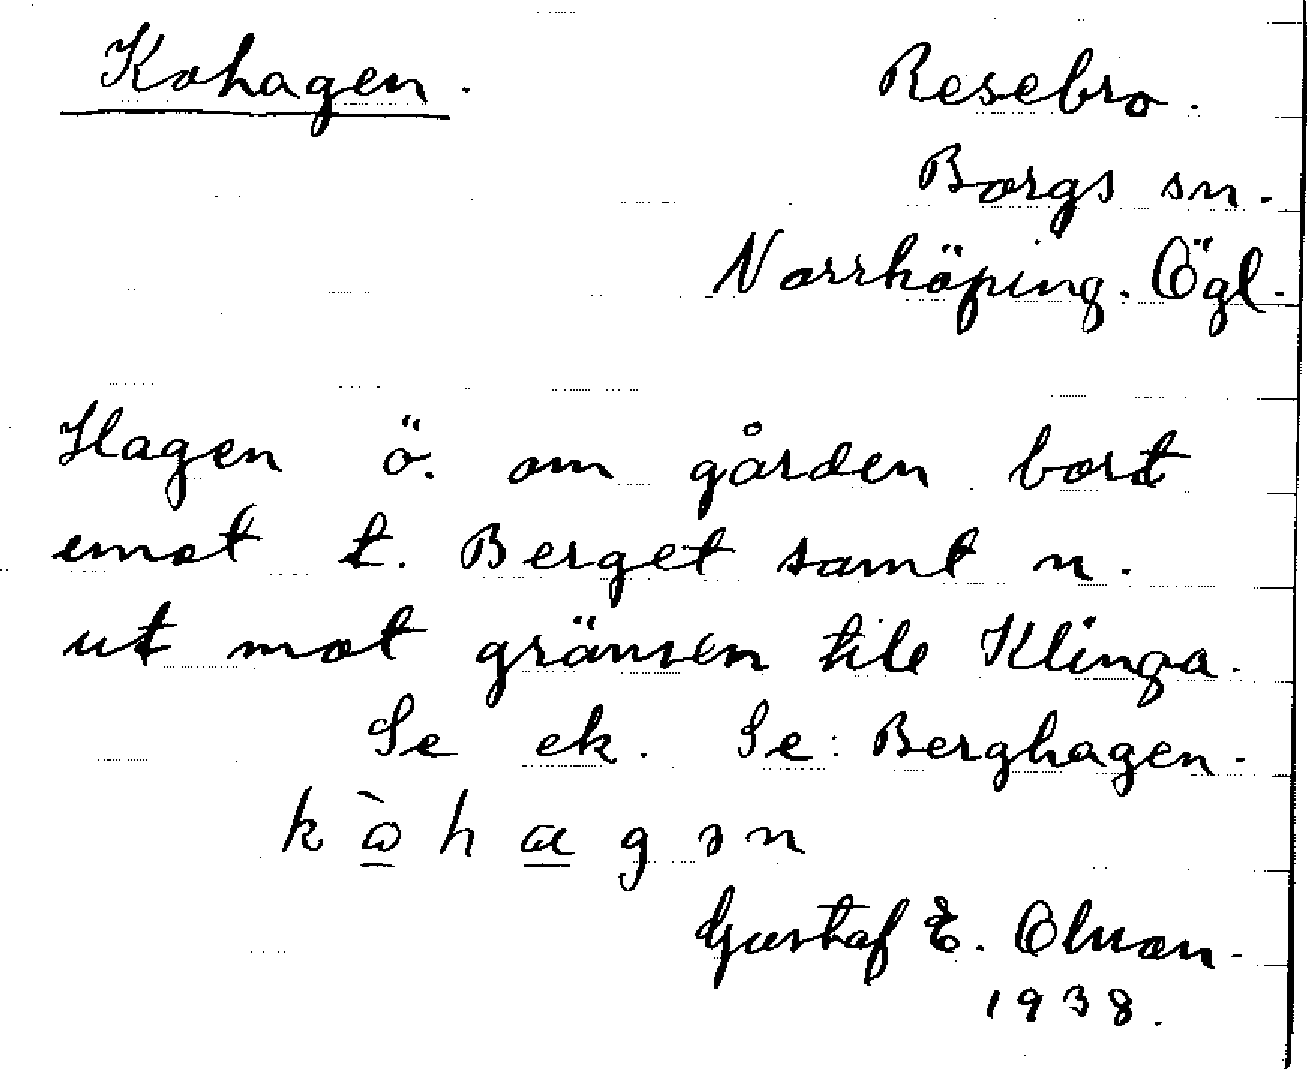 Kohagen.
Resebro.
Borgs sn.
Norrköping. Ögl.
Hagen ö. om gården bort
emot t. Berget samt n.
ut mot gränsen till Klinga.
Se ek. Se: Berghagen.
Gustaf E. Olsson.
1938.